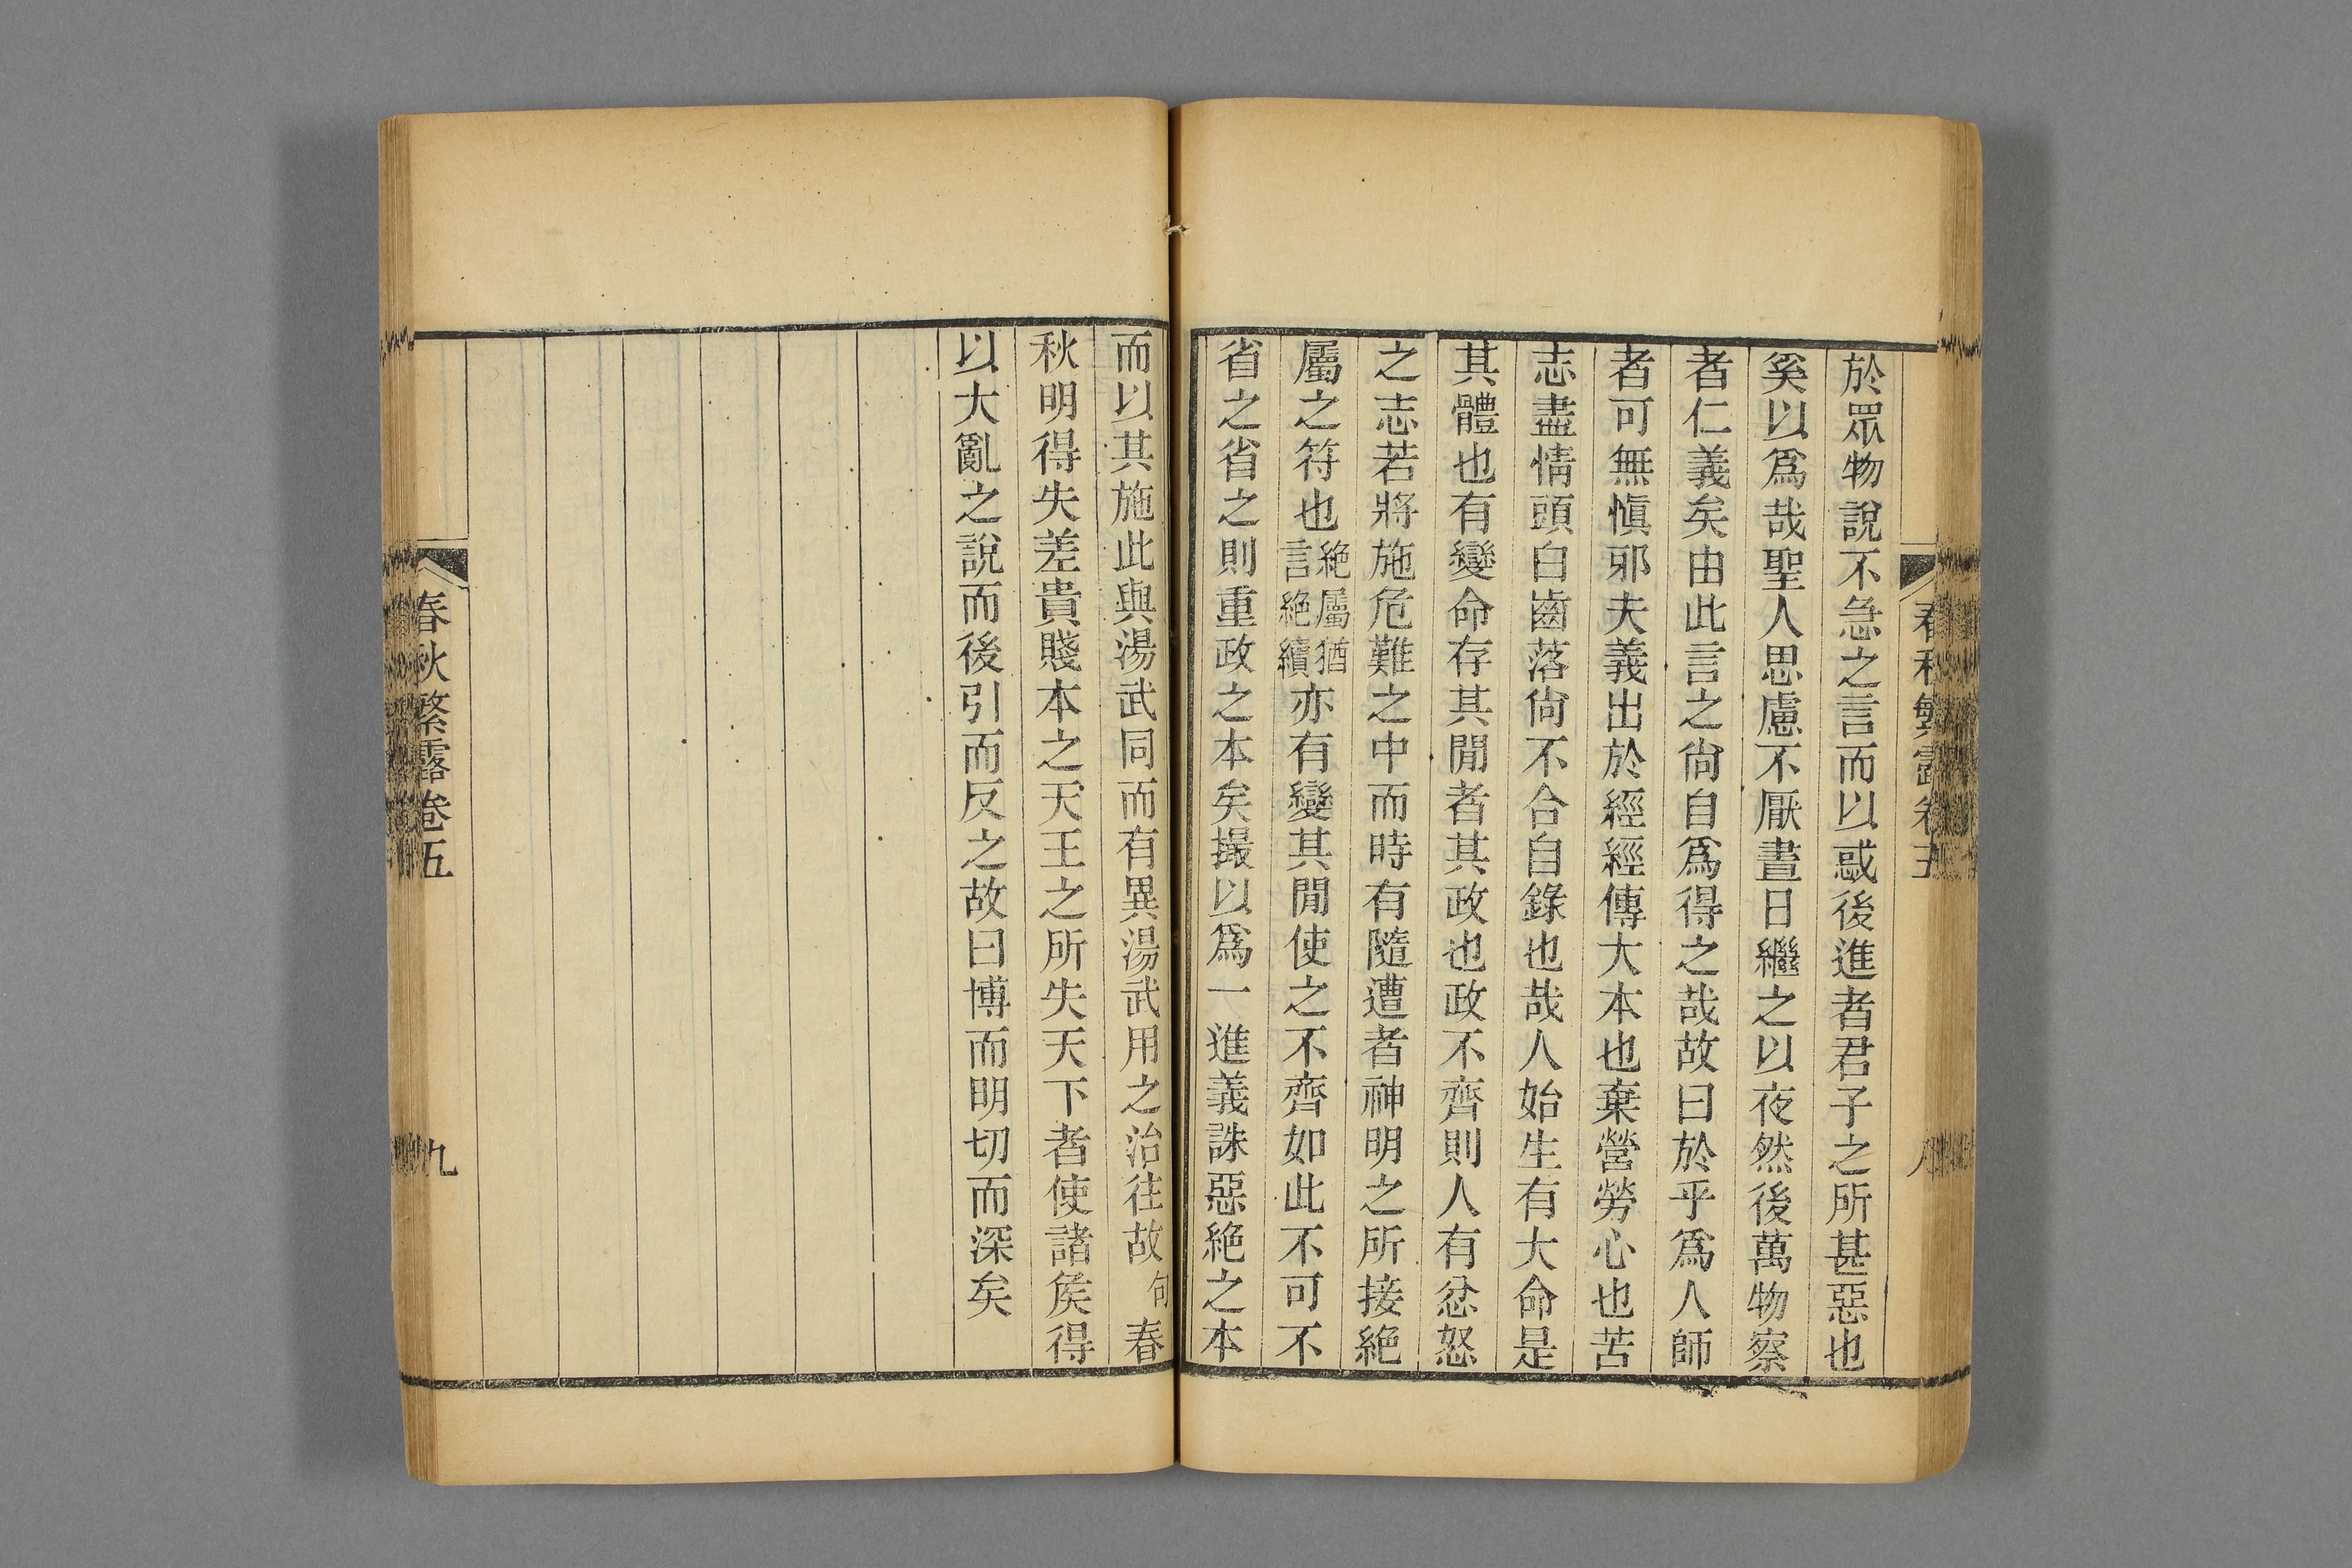 春秋繁露卷五
於眾物說不急之言而以惑後進者君子之所甚惡也
奚以爲哉聖人思慮不厭晝日繼之以夜然後萬物察
者仁義矣由此言之尙自爲得之哉故曰於乎爲人師
者可無愼邪夫義出於經經傳大本也棄營勞心也苦
志盡情頭白齒落尙不合自錄也哉人始生有大命是
其體也有變命存其閒者其政也政不齊則人有忿怒
之志若將施危難之中而時有隨遭者神明之所接絶
屬之符也絶屬猶言絶續亦有變其閒使之不齊如此不可不
省之省之則重政之本矣撮以爲一進義誅惡絶之本
而以其施此與湯武同而有異湯武用之治往故句春
秋明得失差貴賤本之天王之所失天下者使諸矦得
以大亂之說而後引而反之故曰博而明切而深矣
春秋繁露卷五
九